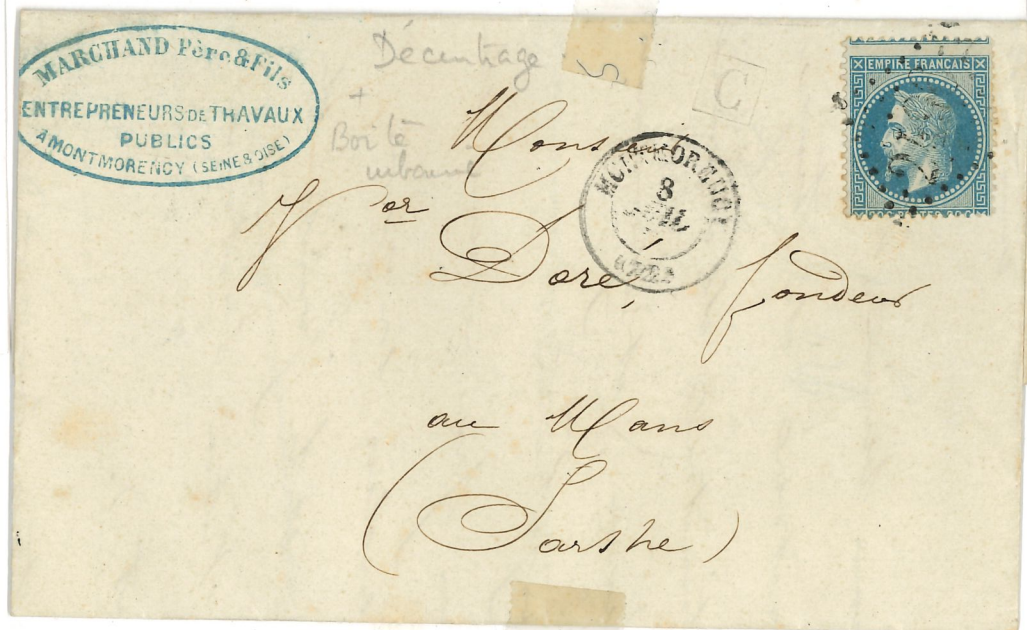 MARCHAND Père & Fils
ENTREPRENEURS DE TRAVAUX
PUBLICS
A MONTMORENCY (SEINE & OISE)
Décentrage
+
Boîte
urbaine
5
C
EMPIRE FRANÇAIS
Monsieur
Vor Dore, fondeur
au Mans
(Sarthe)
MONTMORENCY
8